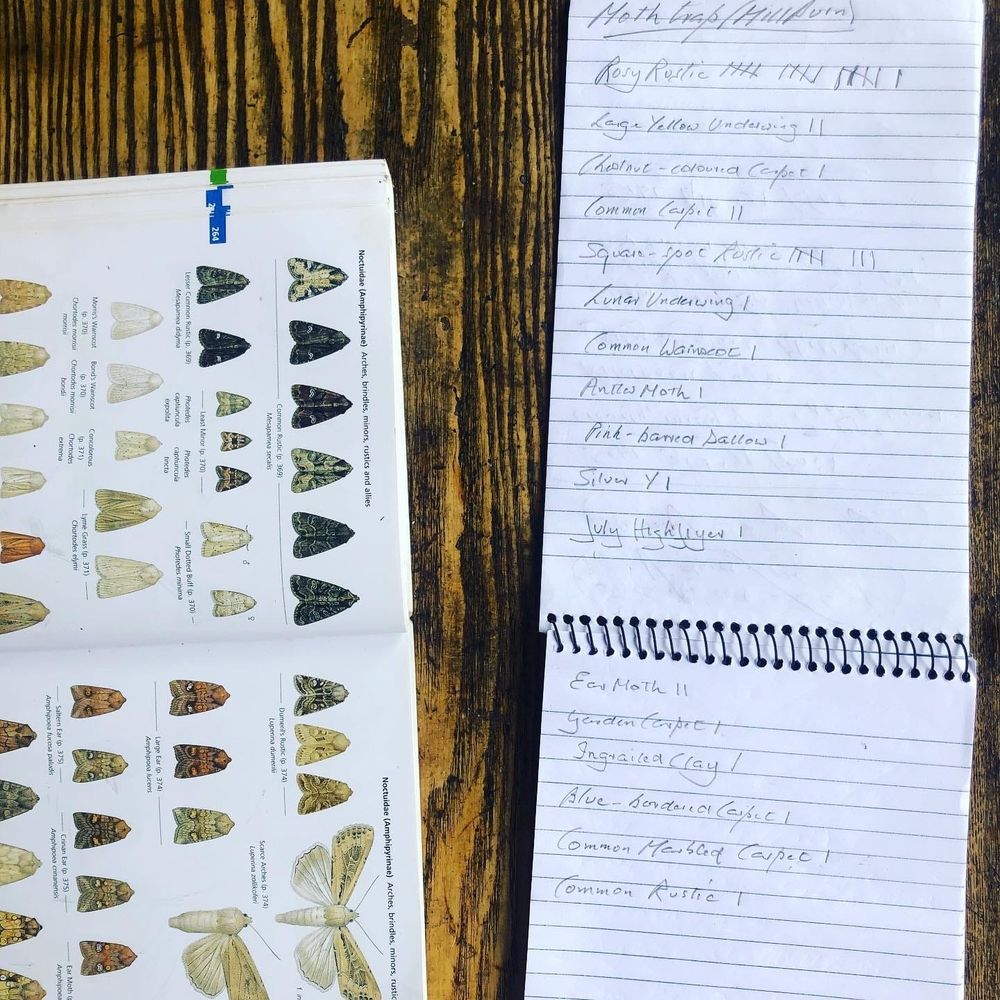 264
Noctuidae (Amphipyrinae) Arches, brindles, minors, rustics and allies
Common Rustic (p. 369)
Mesapamea secalis
Lesser Common Rustic (p. 369)
Mesapamea didyma
Least Minor (p. 370)
Photedes captiuncula expolita
Photedes captiuncula tincta
Small Dotted Buff (p. 370)
Photedes minima
♂
♀
Morris's Wainscot (p. 370)
Chortodes morrisii morrisii
Bond's Wainscot (p. 370)
Chortodes morrisii bondii
Concolorous (p. 371)
Chortodes extrema
Lyme Grass (p. 371)
Chortodes elymi
Noctuidae (Amphipyrinae) Arches, brindles, minors, rustic
Dumeril's Rustic (p. 374)
Luperina dumerilii
Scarce Arches (p. 374)
Luperina zollikoferi
Large Ear (p. 374)
Amphipoea lucens
Saltern Ear (p. 375)
Amphipoea fucosa paludis
Crinan Ear (p. 375)
Amphipoea crinanensis
Ear Moth (p
Amphipoea
Moth trap (Mill Ruin)
Rosy Rustic IIII IIII IIIII I
Large Yellow Underwing II
Chestnut-coloured Carpet I
Common Carpet II
Square-spot Rustic IIII III
Lunar Underwing I
Common Wainscot I
Antler Moth I
Pink-barred Sallow I
Silver Y I
July Highflyer I
Ear Moth II
Garden Carpet I
Ingrailed Clay I
Blue-bordered Carpet I
Common Marbled Carpet I
Common Rustic I